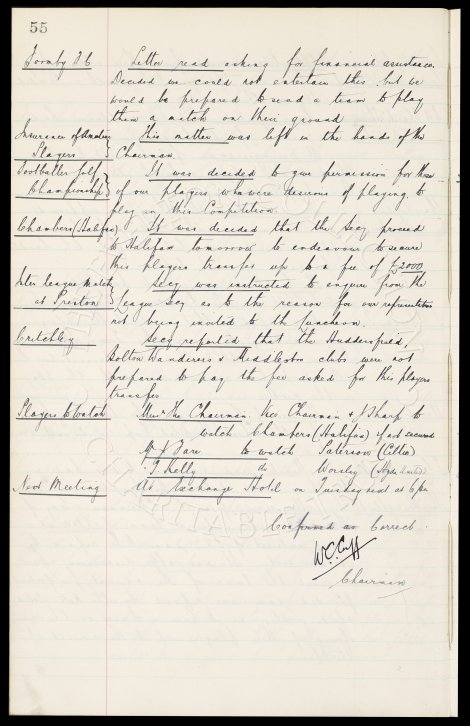 55
Formby F C Letter read asking for financial assistance.
Decided we could not entertain this but we
would be prepared to send a team to play
them a match on their ground
Insurance of Amateur Players } This matter was left in the hands of the
Chairman.
Footballer Golf Championship } It was decided to give permission for those
of our players who were desirous of playing to
play in this Competition
Chambers (Halifax) It was decided that the Secy proceed
to Halifax tomorrow to endeavour to secure
this players transfer up to a fee of £2000
Inter League Match at Preston } Secy was instructed to enquire from the
League Secy as to the reason for our representatives
not being invited to the Luncheon.
Critchley Secy reported that the Huddersfield,
Bolton Wanderers & Middlesbro clubs were not
prepared to pay the fee asked for this players
transfer
Players to Watch Messrs The Chairman, Vice Chairman & J Sharp to
watch Chambers (Halifax) if not secured
Mr J Fare to watch Paterson
T. Kelly do Worsley
Next Meeting At Exchange Hotel on Tuesday next at 6 pm
Confirmed as Correct.
W.C. Cuff
Chairman